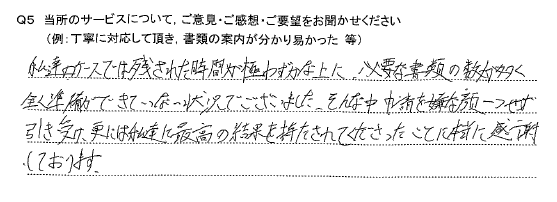 Q5 当所のサービスについて，ご意見・ご感想・ご要望をお聞かせください
（例：丁寧に対応して頂き，書類の案内が分かり易かった 等）
私達のケースでは残された時間が極わずかな上に、必要な書類の数が多く
全く準備ができていない状況でございました。そんな中 申請を嫌な顔一つせず
引き受け、更には私達に最高の結果を持たされてくださったことに本当に感謝
しております。